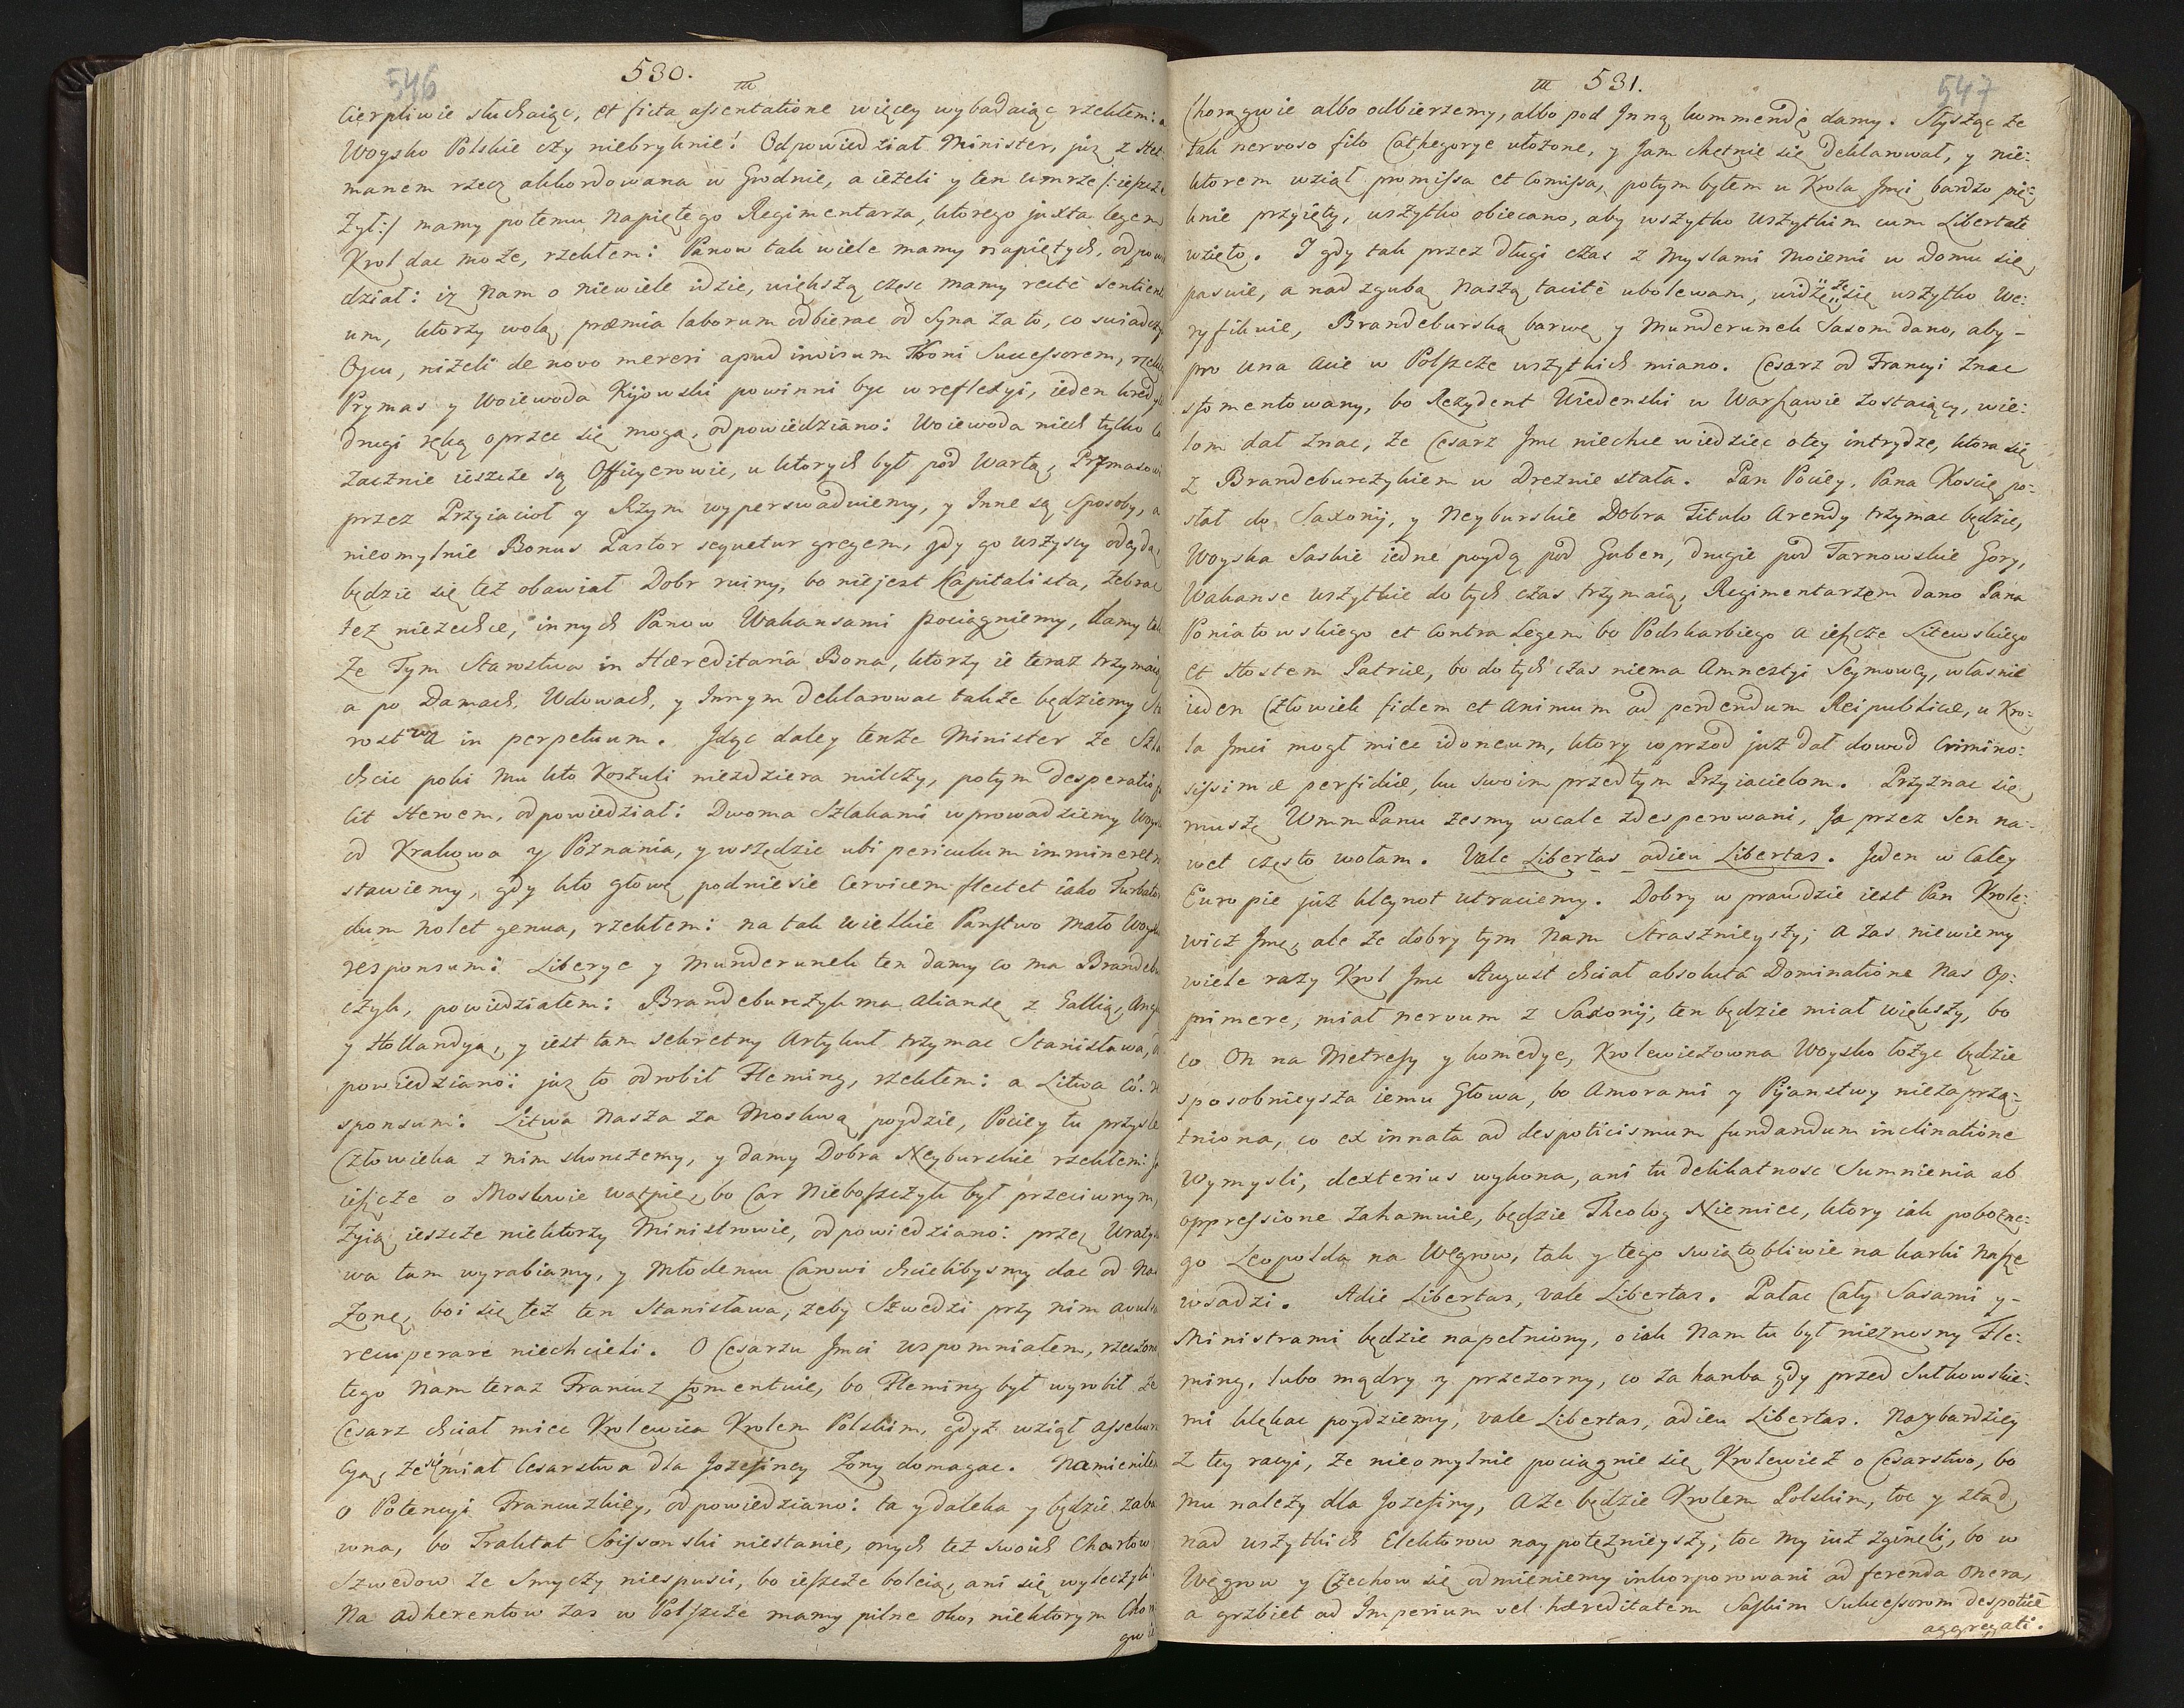 546
530.
m
Cierpliwie słuchaiąc, et ficta assentatione więcey wybadaiąc rzekłem: a
Woysko Polskie czy niebryknie! Odpowiedział Minister, już z Het-
manem rzecz akkordowana w Grodnie, a ieżeli y ten umrze /:ieszcze
żył:/ mamy potemu napiętego Regimentarza, ktorego juxta legem
Krol dac może, rzekłem: Panow tak wiele mamy napiętych, odpowie
dział: iż Nam o niewiele idzie, większą częsc mamy recté sentient
um, ktorzy wolą præmia laborum odbierac od Syna za to, co swiadczy
Oycu, niżeli de novo mereri apud invisum Throni Successorem, rzekłe
Prymas y Woiewoda Kijowski powinni byc w reflexyi, ieden kred
drugi ręką oprzec się mogą, odpowiedziano: Woiewoda niech tylko co
zacznie ieszcze są Officyerowie, u ktorych był pod Wartą, Prymasowi
przez Przyiacioł y Rzym wyperswaduiemy, y Inne są sposoby, a
nieomylnie Bonus Pastor sequetur gregem, gdy go wszyscy odeydą
będzie się też obawiał Dobr ruiny, bo niejest Kapitalista, żebrac
też niezechce, innych Panow Wakansami pociągniemy, damy tak
że Tym Starostwa in Hæreditaria Bona, ktorzy ie teraz trzymaią
a po Damach, Wdowach, y Innym deklarowac także będziemy Sta
rostwa in perpetuum. Idąc daley tenże Minister że Szla
chcic poki mu kto Koszuli niezdziera milczy, potym desperatio fa
cit Heroem, odpowiedział: Dwoma Szlakami wprowadziemy Woysk
od Krakowa y Poznania, y wszędzie ubi periculum immineret n
stawiemy, gdy kto głowę podniesie Cervicem flectet iako Turbator
dum nolet genua, rzekłem: na tak wielkie Panstwo mało Woyska
responsum: Liberye y Munderunek ten damy co ma Brandebu
czyk, powiedziałem: Brandeburczyk ma aliansę z Gallią, Ang
y Hollandyą, y iest tam sekretny Artykuł trzymac Stanisława, o
powiedziano: już to odrobił Fleming, rzekłem: a Litwa co. re
sponsum: Litwa Nasza za Moskwą poydzie, Pociey tu przysle
Człowieka z nim skonczemy, y damy Dobra Neyburskie rzekłem:
ieszcze o Moskwie wątpię, bo Car Nieboszczyk był przeciwnym,
żyią ieszcze niektorzy Ministrowie, odpowiedziano: przez Uraty
wa tam wyrabiamy, y Młodemu Carowi chcielibysmy dac od Nas
Zonę, boi się też ten Stanisława, żeby Szwedzi przy nim avulsa
recuperare niechcieli. O Cesarzu Jmci wspomniałem, rzeczono
tego Nam teraz Francuz fomentuie, bo Fleming był wyrobił że
Cesarz chciał miec Krolewica Krolem Polskim, gdyż wziął assekura
cyą, że się miał Cesarstwa dla Jozefiney Zony domagac. Namieniłem
o Potencyi Francuzkiey, odpowiedziano: ta y daleka y będzie zaba
wna, bo Traktat Soissonski niestanie, onych też swoich Chartow
Szwedow ze smyczy niespusci, bo ieszcze boleią, ani się wyleczyli
Na adherentow zas w Polszcze mamy pilne oko, niektorym Chorą
gwie
m 531.
547
Chorągwie albo odbierzemy, albo pod Inną kommendę damy. Słysząc że
tak nervoso filo Cathegorye ułożone, y Jam chętnie się deklarował, y nie:
ktorem wziął promissa et Comissa, potym byłem u Krola Jmci bardzo pię:
knie przyięty, wszytko obiecano, aby wszytko wszytkim cum Libertate
wzięto. I gdy tak przez długi czas z myslami moiemi w domu się
pasuię, a nad zgubą naszą tacité ubolewam, widzę że się wszytko We:
ryfikuie, Brandeburską barwę y Munderunek Sasom dano, aby-
pro una acie w Polszcze wszytkich miano. Cesarz od Francyi znac
sfomentowany, bo Rezydent Wiedenski w Warszawie zostaiący, wie:
lom dał znac, że Cesarz Jmc niechce wiedziec o tey intrydze, ktora się
z Brandeburczykiem w Dreznie stała. Pan Pociey, Pana Koscię po:
słał do Saxonij, y Neyburskie Dobra Titulo Arendy trzymac będzie,
Woyska Saskie iedne poydą pod Guben, drugie pod Tarnowskie Gory,
Wakanse wszytkie do tych czas trzymaią, Regimentarzem dano Pana
Poniatowskiego et Contra Legem bo Podskarbiego a ieszcze Litewskiego
et Hostem Patriæ, bo do tych czas niema Amnestyi Seymowey, własnie
ieden Człowiek fidem et animum ad perdendum Reipublicæ, u Kro:
la Jmci mogł miec idoneum, ktory wprzod już dał dowod Crimino:
sissimæ perfidiæ, ku swoim przedtym Przyiacielom. Przyznac się
muszę Wmm Panu żesmy wcale zdesperowani, Ja przez Sen na:
wet często wołam. Vale Libertas adieu Libertas. Jeden w Całey
Europie już kleynot utraciemy. Dobry w prawdzie iest Pan Krole:
wicz Jmc, ale że dobry tym Nam Strasznieyszy; a zas niewiemy
wiele razy Krol Jmc August chciał absolutâ Dominatione Nas Op:
primere, miał nervum z Saxonij, ten będzie miał większy, bo
co On na Metressy y komedye, Krolewiczowna Woysko łożyc będzie
sposobnieysza iemu Głowa, bo Amorami y Pijanstwy niezaprzą:
tniona, co ex innata ad despoticismum fundandum inclinatione
wymysli, dexterius wykona, ani tu delikatnosc Sumnienia ab
oppressione zahamuie, będzie Theolog Niemiec, ktory iak pobożne:
go Leopolda na Węgrow, tak y tego swiątobliwie na karki nasze
wsadzi. Adie Libertas, vale Libertas. Pałac Cały Sasami y-
Ministrami będzie napełniony, o iak Nam tu był nieznosny Fle:
ming, lubo mądry y przezorny, co za hanba gdy przed Sułkowskie:
mi klękac poydziemy, vale Libertas, adieu Libertas. Naybardziey
z tey racyi, że nieomylnie pociągnie się Krolewicz o Cesarstwo, bo
mu należy dla Jozefiny, a że będzie Krolem Polskim, toc y ztąd,
nad wszytkich Elektorow naypotężnieyszy; toc my iuż zgineli, bo w
Węgrow y Czechow się odmieniemy inkorporowani ad ferenda onera,
a grzbiet ad Imperium vel hæreditatem Saskim Sukcessorom despoticé
aggregati.